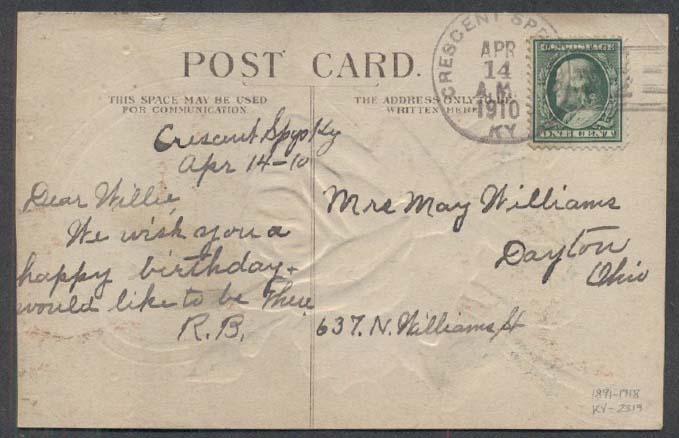 POST CARD.
THIS SPACE MAY BE USED
FOR COMMUNICATION.
THE ADDRESS ONLY TO BE
WRITTEN HERE
CRESCENT SP
APR
14
A.M.
1910
KY
U.S. POSTAGE
ONE CENT
Crescent Spgs Ky
Apr 14-10
Dear Willie,
We wish you a
happy birthday +
would like to be There
R.B.
Mrs May Williams
Dayton
Ohio
637. N. Williams St
1891-1918
KY-2319